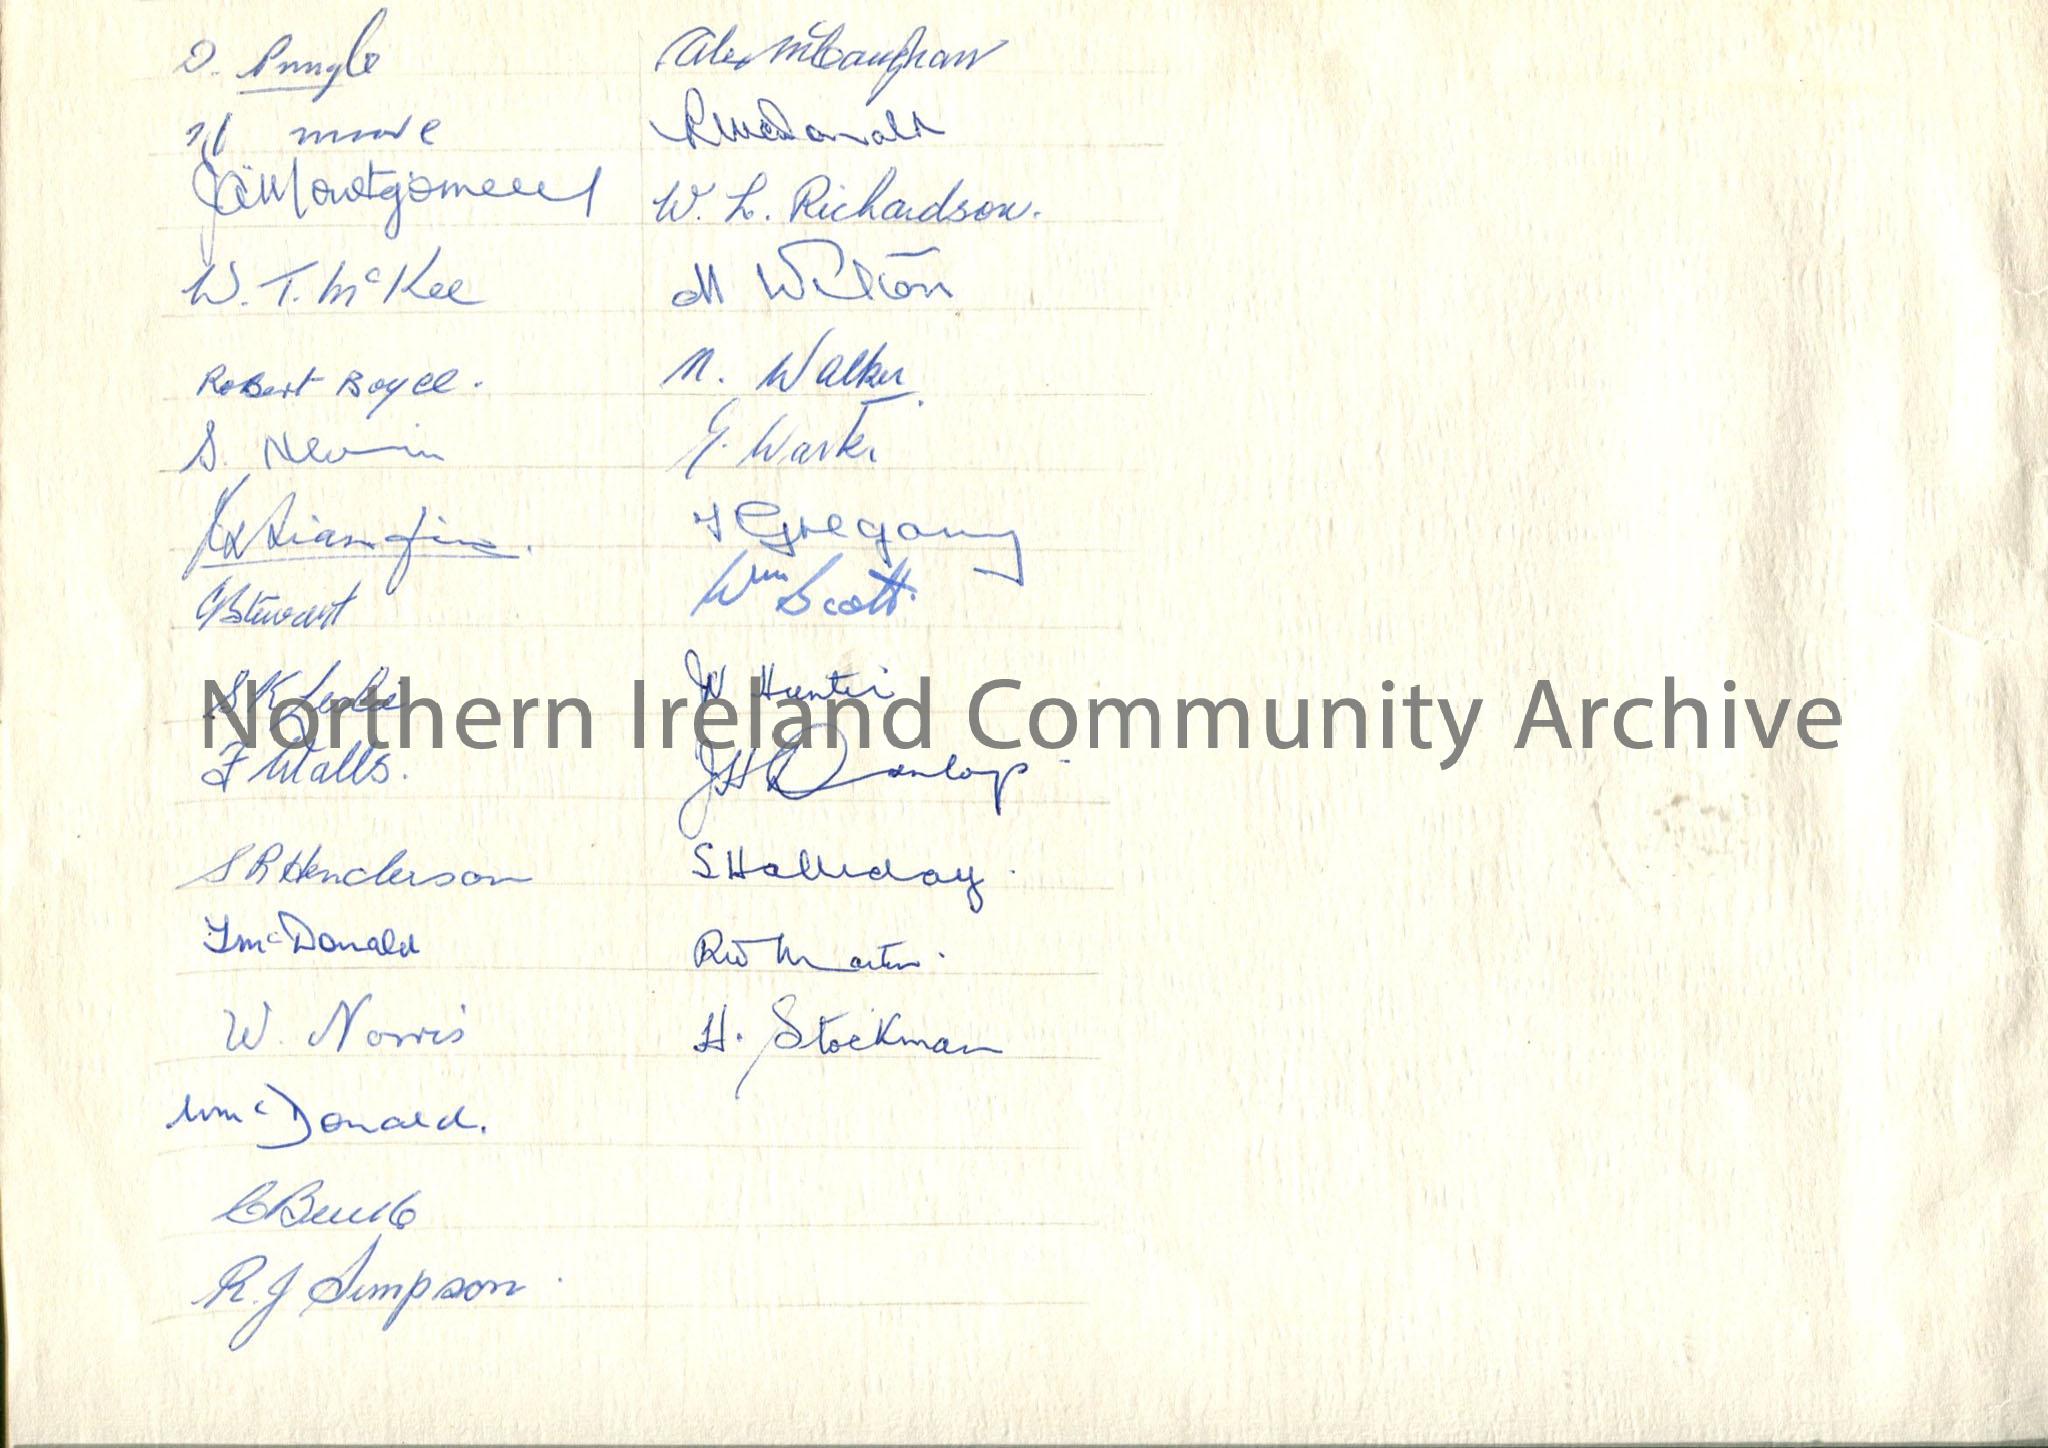 D. Pringle
Alex McCaughan
moore
R McDonald
J A Montgomery
W. L. Richardson.
W. T. McKee
M Wilton
Robert Boyce.
N. Walker.
S. Nevin
G. Warke
T Gregory
Stewart
Wm Scott.
S K Leslie
W Hunter
F Walls.
J H Dunlop
S R Henderson
S Halliday.
J McDonald
R W Martin.
W. Norris
H. Stockman
W McDonald.
C
R. J Simpson.
Northern Ireland Community Archive